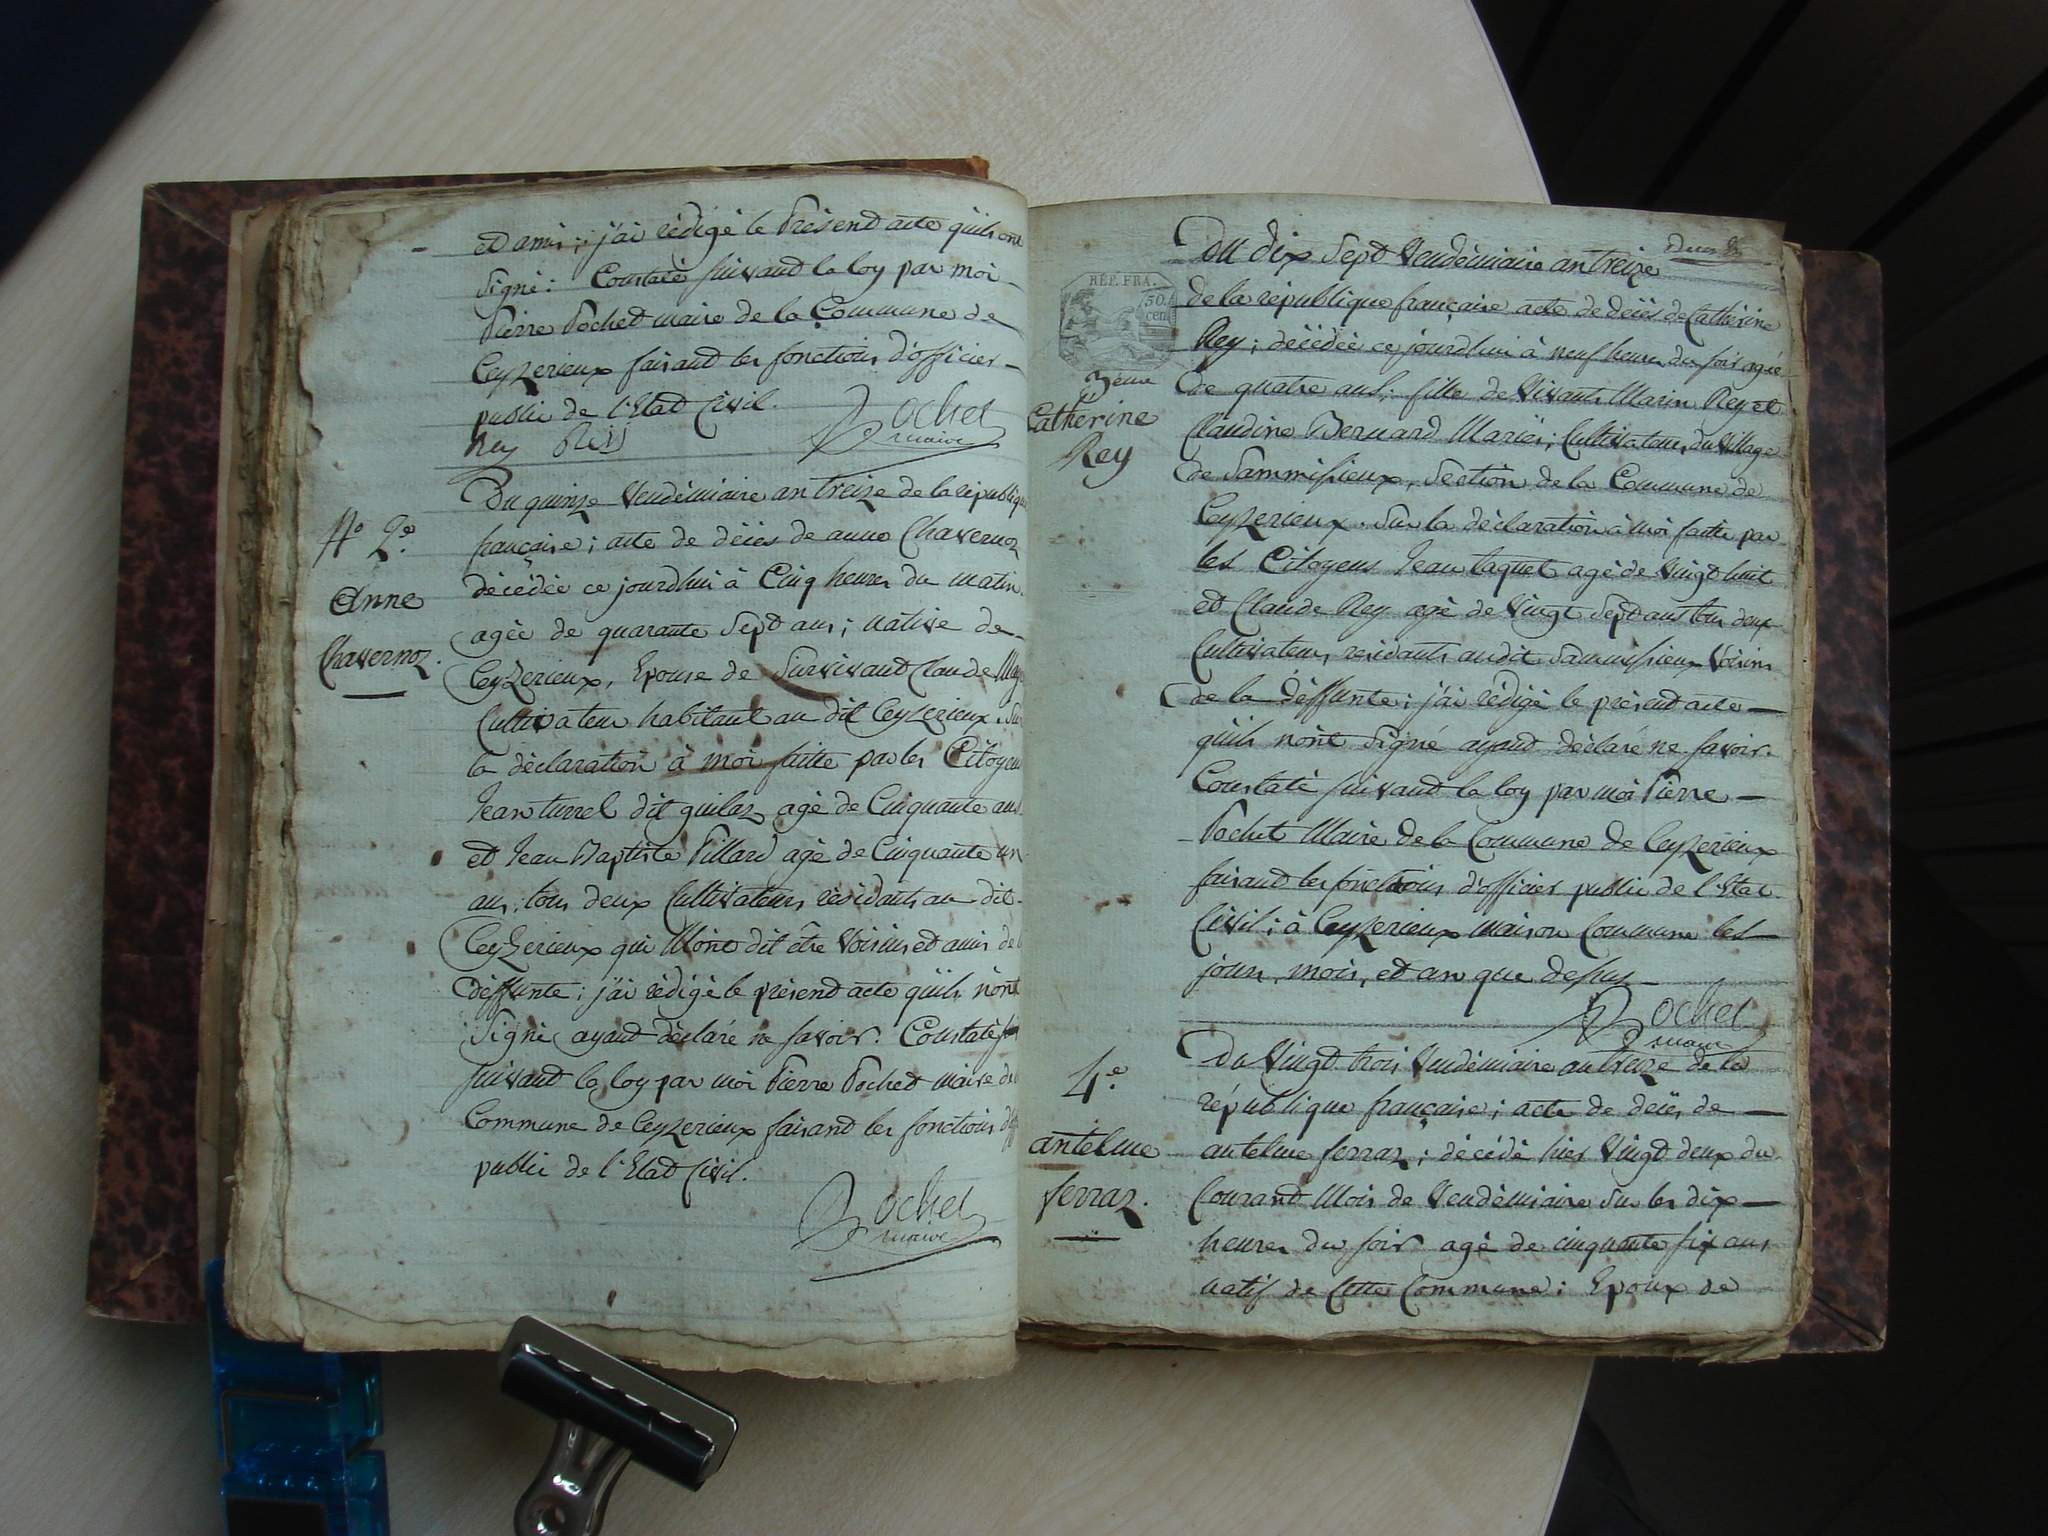 et amis; j'ai rédigé le Présent acte qu'ils ont
signé: Constaté suivant la loy par moi
Pierre Pochet maire de la Commune de
Ceyzerieux faisant les fonctions d'officier
public de l'Etat Civil.
Rey
Pochet
maire
N° 2e
Anne
Chavernoz.
Du quinze Vendémiaire an treize de la républiq
française; acte de décès de anne Chavernoz
décédée ce jourdhui à Cinq heures du matin
agée de quarante Sept ans; native de
Ceyzerieux, Epouse de Survivant Claude
Cultivateur habitant au dit Ceyzerieux. Sur
la déclaration à moi faitte par les Citoyens
Jean turrel dit guilaz agé de Cinquante ans
et Jean Baptiste Pillard agé de Cinquante un
ans; tous deux Cultivateurs résidants au dit
Ceyzerieux qui M'ont dit être Voisins et amis de
déffunte; j'ai rédigé le présent acte qu'ils n'ont
Signé ayant déclaré ne savoir. Constaté
suivant la loy par moi Pierre Pochet maire de
Commune de Ceyzerieux faisant les fonctions
public de l'Etat Civil.
Pochet
maire
Du dix Sept Vendémiaire an treize
REP. FRA.
50
cen
3éme
Catherine
Rey
de la république française acte de décès de Cathérine
Rey; décédée ce jourdhui à neuf heures du soir agée
de quatre ans; fille de Vivants Marin Rey et
Claudine Bernard Mariés; Cultivateurs du Village
de Sammisieux, Section de la Commune de
Ceyzerieux. Sur la déclaration à moi faitte par
les Citoyens Jean taquet agé de Vingt huit
et Claude Rey agé de Vingt Sept ans tous deux
Cultivateurs residants au dit Sammisieux Voisins
de la déffunte; j'ai rédigé le présent acte
qu'ils nont Signé ayant déclaré ne savoir.
Constaté suivant la loy par moi Pierre
Pochet Maire de la Commune de Ceyzerieux
faisant les fonctions d'officier public de l'Etat
Civil; à Ceyzerieux maison Commune les
jours, mois, et an que dessus
Pochet
maire
4e
antelme
ferraz.
Du Vingt trois Vendémiaire an treize de la
république française; acte de décès de
antelme ferraz; décédé hier Vingt deux du
Courant Mois de Vendémiaire Sur les dix
heures du soir agé de cinquante six ans
natif de Cette Commune; Epoux de